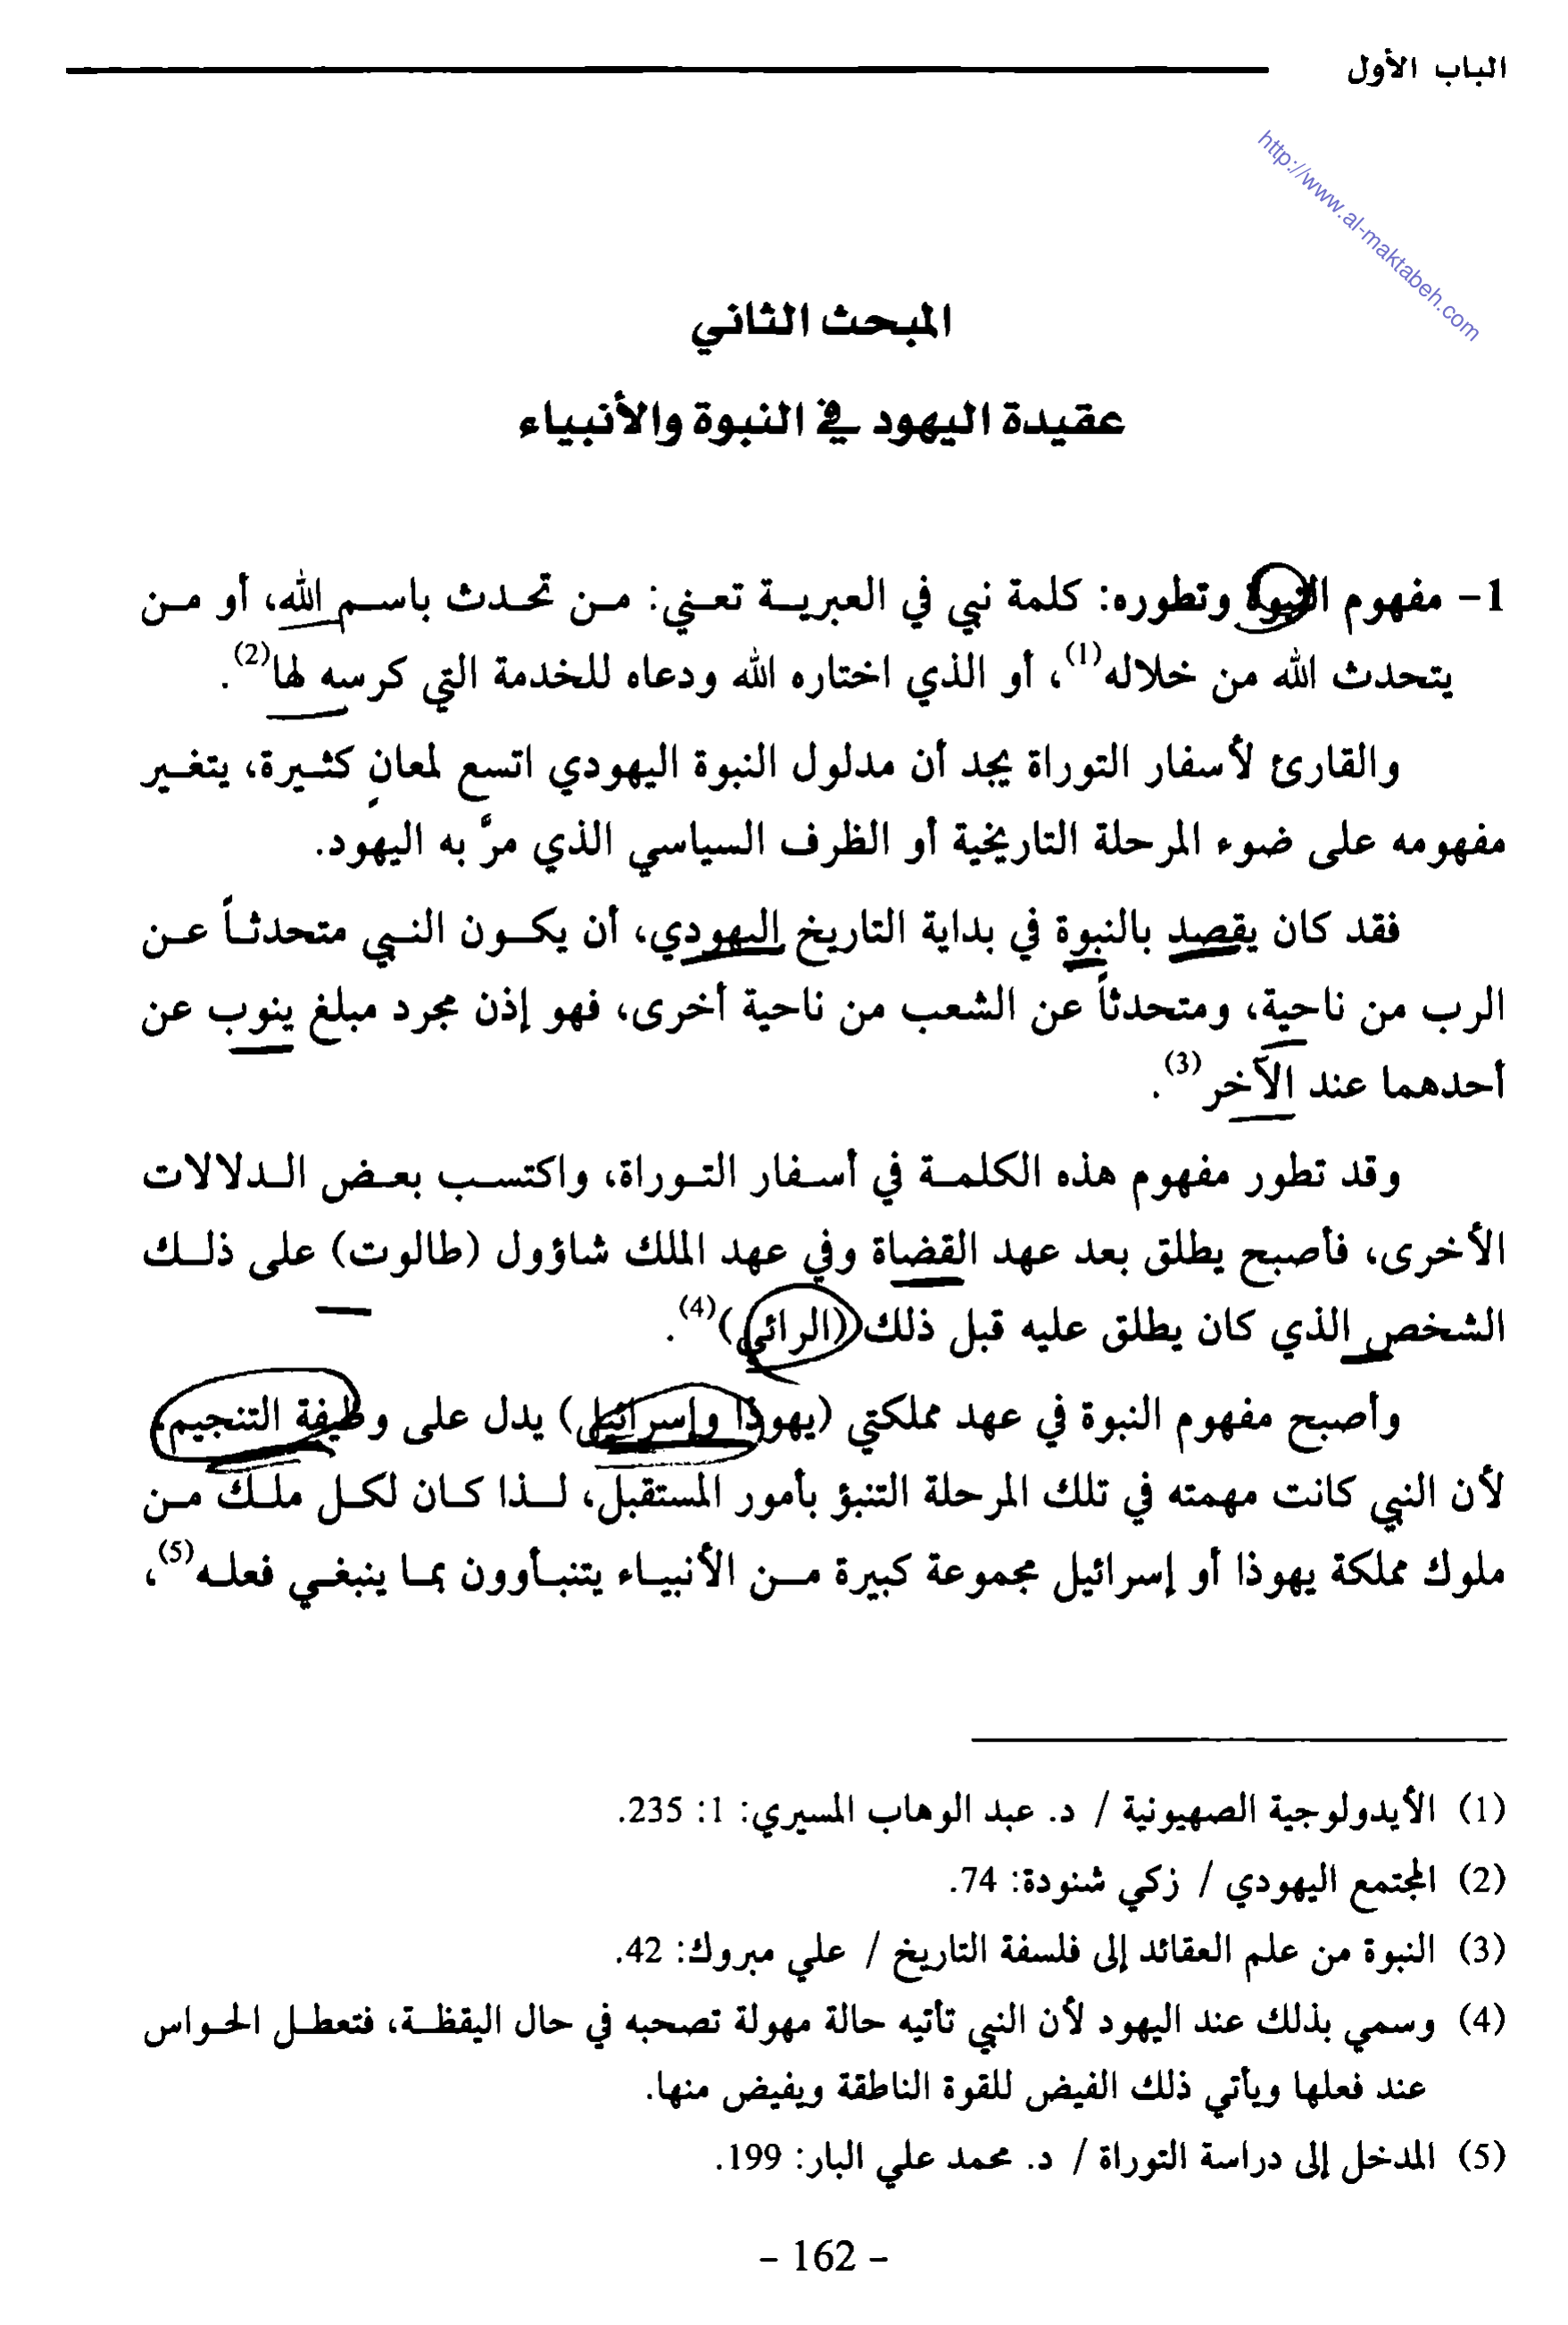 الباب الأول
http://www.al-maktabeh.com
المبحث الثاني
عقيدة اليهود في النبوة والأنبياء
1- مفهوم النبوة وتطوره: كلمة نبي في العبرية تعني: من تحدث باسم الله، أو من
يتحدث الله من خلاله(1)، أو الذي اختاره الله ودعاه للخدمة التي كرسه لها(2).
والقارئ لأسفار التوراة يجد أن مدلول النبوة اليهودي اتسع لمعانٍ كثيرة، يتغير
مفهومه على ضوء المرحلة التاريخية أو الظرف السياسي الذي مرَّ به اليهود.
فقد كان يقصد بالنبوة في بداية التاريخ اليهودي، أن يكون النبي متحدثاً عن
الرب من ناحية، ومتحدثاً عن الشعب من ناحية أخرى، فهو إذن مجرد مبلغ ينوب عن
أحدهما عند الآخر(3).
وقد تطور مفهوم هذه الكلمة في أسفار التوراة، واكتسب بعض الدلالات
الأخرى، فأصبح يطلق بعد عهد القضاة وفي عهد الملك شاؤول (طالوت) على ذلك
الشخص الذي كان يطلق عليه قبل ذلك ((الرائي))(4).
وأصبح مفهوم النبوة في عهد مملكتي (يهوذا وإسرائيل) يدل على وظيفة التنجيم،
لأن النبي كانت مهمته في تلك المرحلة التنبؤ بأمور المستقبل، لذا كان لكل ملك من
ملوك مملكة يهوذا أو إسرائيل مجموعة كبيرة من الأنبياء يتنبأوون بما ينبغي فعله(5)،
(1) الأيدولوجية الصهيونية / د. عبد الوهاب المسيري: 1: 235.
(2) المجتمع اليهودي / زكي شنودة: 74.
(3) النبوة من علم العقائد إلى فلسفة التاريخ / علي مبروك: 42.
(4) وسمي بذلك عند اليهود لأن النبي تأتيه حالة مهولة تصحبه في حال اليقظة، فتعطل الحواس
عند فعلها ويأتي ذلك الفيض للقوة الناطقة ويفيض منها.
(5) المدخل إلى دراسة التوراة / د. محمد علي البار: 199.
- 162 -